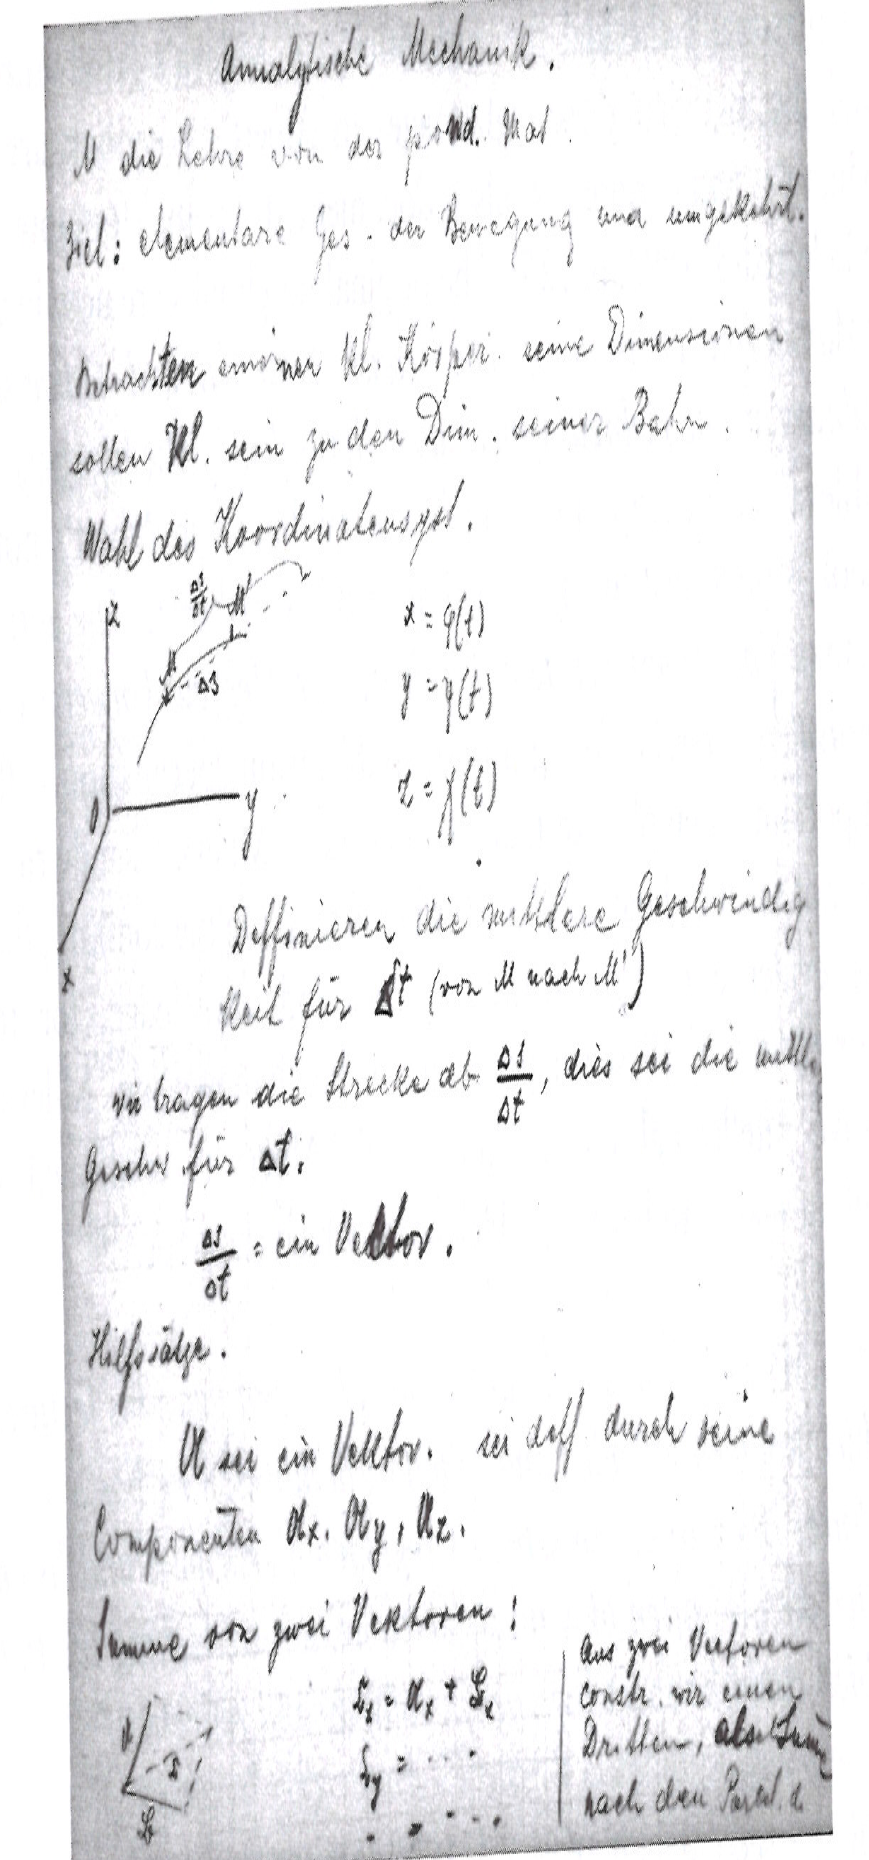 Annalytische Mechanik.
M die Lehre von der pond. Mat.
Ziel: elementare Ges. der Bewegung und umgekehrt.
Betrachten einen kl. Körper. seine Dimensionen
sollen kl. sein zu den Dim. seiner Bahn.
Wahl des Koordinatensyst.
z
Δs/Δt
M'
M
Δs
0
y
x
x = φ(t)
y = ψ(t)
z = χ(t)
Deffinieren die mittlere Geschwindig
keit für Δt (von M nach M')
wir tragen die Strecke ab Δs/Δt, dies sei die mittl.
Geschw. für Δt.
Δs/Δt = ein Vektor.
Hilfssätze.
𝔄 sei ein Vektor. sei deff durch seine
Componenten 𝔄x, 𝔄y, 𝔄z.
Summe von zwei Vektoren:
𝔄
𝔖
𝔅
𝔖x = 𝔄x + 𝔅x
𝔖y = ...
. . ...
Aus zwei Vectoren
constr. wir einen
Dritten, als Summe
nach den Paral. d